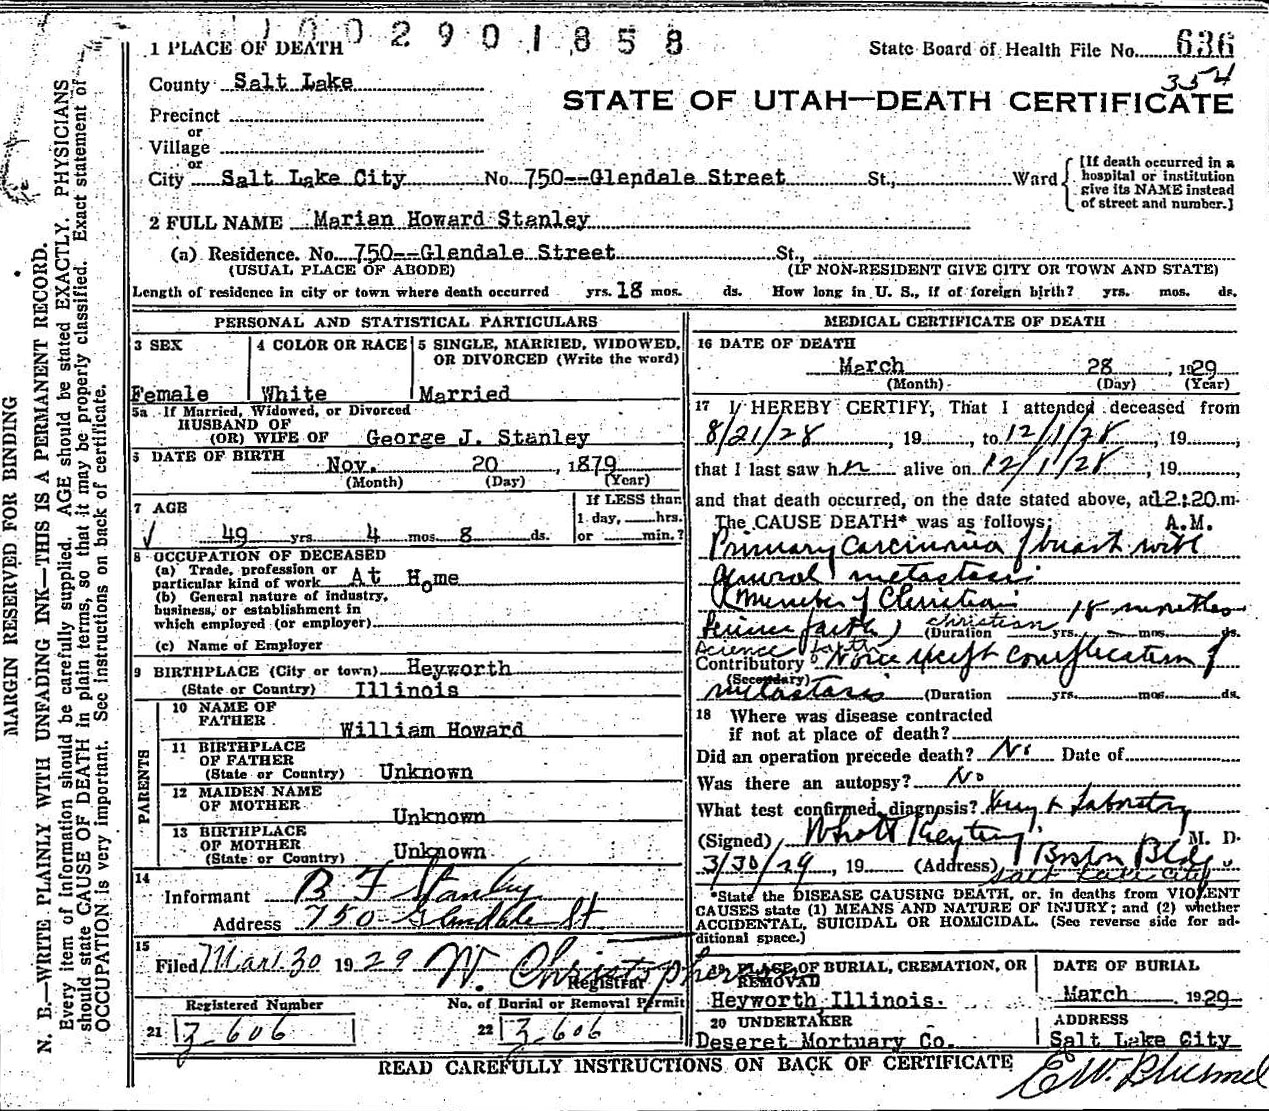 2901858
1 PLACE OF DEATH
State Board of Health File No. 636
354
County Salt Lake
STATE OF UTAH—DEATH CERTIFICATE
Precinct
or
Village
or
City Salt Lake City No 750--Glendale Street St., Ward
[If death occurred in a hospital or institution give its NAME instead of street and number.]
2 FULL NAME Marian Howard Stanley
(a) Residence. No. 750--Glendale Street St.,
(USUAL PLACE OF ABODE) (IF NON-RESIDENT GIVE CITY OR TOWN AND STATE)
Length of residence in city or town where death occurred yrs. 18 mos. ds. How long in U. S., if of foreign birth? yrs. mos. ds.
PERSONAL AND STATISTICAL PARTICULARS
3 SEX
Female
4 COLOR OR RACE
White
5 SINGLE, MARRIED, WIDOWED,
OR DIVORCED (Write the word)
Married
5a If Married, Widowed, or Divorced
HUSBAND OF
(OR) WIFE OF George J. Stanley
6 DATE OF BIRTH
Nov. 20, 1879
(Month) (Day) (Year)
7 AGE
49 yrs 4 mos 8 ds.
If LESS than
1 day, hrs.
or min.?
8 OCCUPATION OF DECEASED
(a) Trade, profession or
particular kind of work At Home
(b) General nature of industry,
business, or establishment in
which employed (or employer)
(c) Name of Employer
9 BIRTHPLACE (City or town) Heyworth
(State or Country) Illinois
PARENTS
10 NAME OF
FATHER William Howard
11 BIRTHPLACE
OF FATHER
(State or Country) Unknown
12 MAIDEN NAME
OF MOTHER Unknown
13 BIRTHPLACE
OF MOTHER
(State or Country) Unknown
14
Informant B F Stanley
Address 750 Glendale St
15
Filed Mar 30 1929 W. Christopherson
Registrar
Registered Number
21 Z-606
No. of Burial or Removal Permit
22 Z-606
MEDICAL CERTIFICATE OF DEATH
16 DATE OF DEATH
March 28, 1929
(Month) (Day) (Year)
17 I HEREBY CERTIFY, That I attended deceased from
8/21/28, 19 to 12/1/28, 19,
that I last saw her alive on 12/1/28, 19,
and that death occurred, on the date stated above, at 12:20.m.
A.M.
The CAUSE DEATH* was as follows:
Primary Carcinoma of breast with
general metastasis
(Member of Christian 18 months
Science faith) (Duration yrs. mos. ds.
Christian
Science faith
Contributory None except complication of
(Secondary)
metastasis (Duration yrs. mos. ds.
18 Where was disease contracted
if not at place of death?
Did an operation precede death? No Date of
Was there an autopsy? No
What test confirmed diagnosis? Xray & Laboratory
(Signed) M. D.
3/30/29, 19 (Address) Boston Bldg
Salt Lake City
*State the DISEASE CAUSING DEATH, or, in deaths from VIOLENT
CAUSES state (1) MEANS AND NATURE OF INJURY; and (2) whether
ACCIDENTAL, SUICIDAL OR HOMICIDAL. (See reverse side for ad-
ditional space.)
19 PLACE OF BURIAL, CREMATION, OR
REMOVAL
Heyworth Illinois.
DATE OF BURIAL
March 1929
20 UNDERTAKER
Deseret Mortuary Co.
ADDRESS
Salt Lake City
READ CAREFULLY INSTRUCTIONS ON BACK OF CERTIFICATE
MARGIN RESERVED FOR BINDING
N. B.—WRITE PLAINLY WITH UNFADING INK—THIS IS A PERMANENT RECORD.
Every item of information should be carefully supplied. AGE should be stated EXACTLY. PHYSICIANS
should state CAUSE OF DEATH in plain terms, so that it may be properly classified. Exact statement of
OCCUPATION is very important. See instructions on back of certificate.